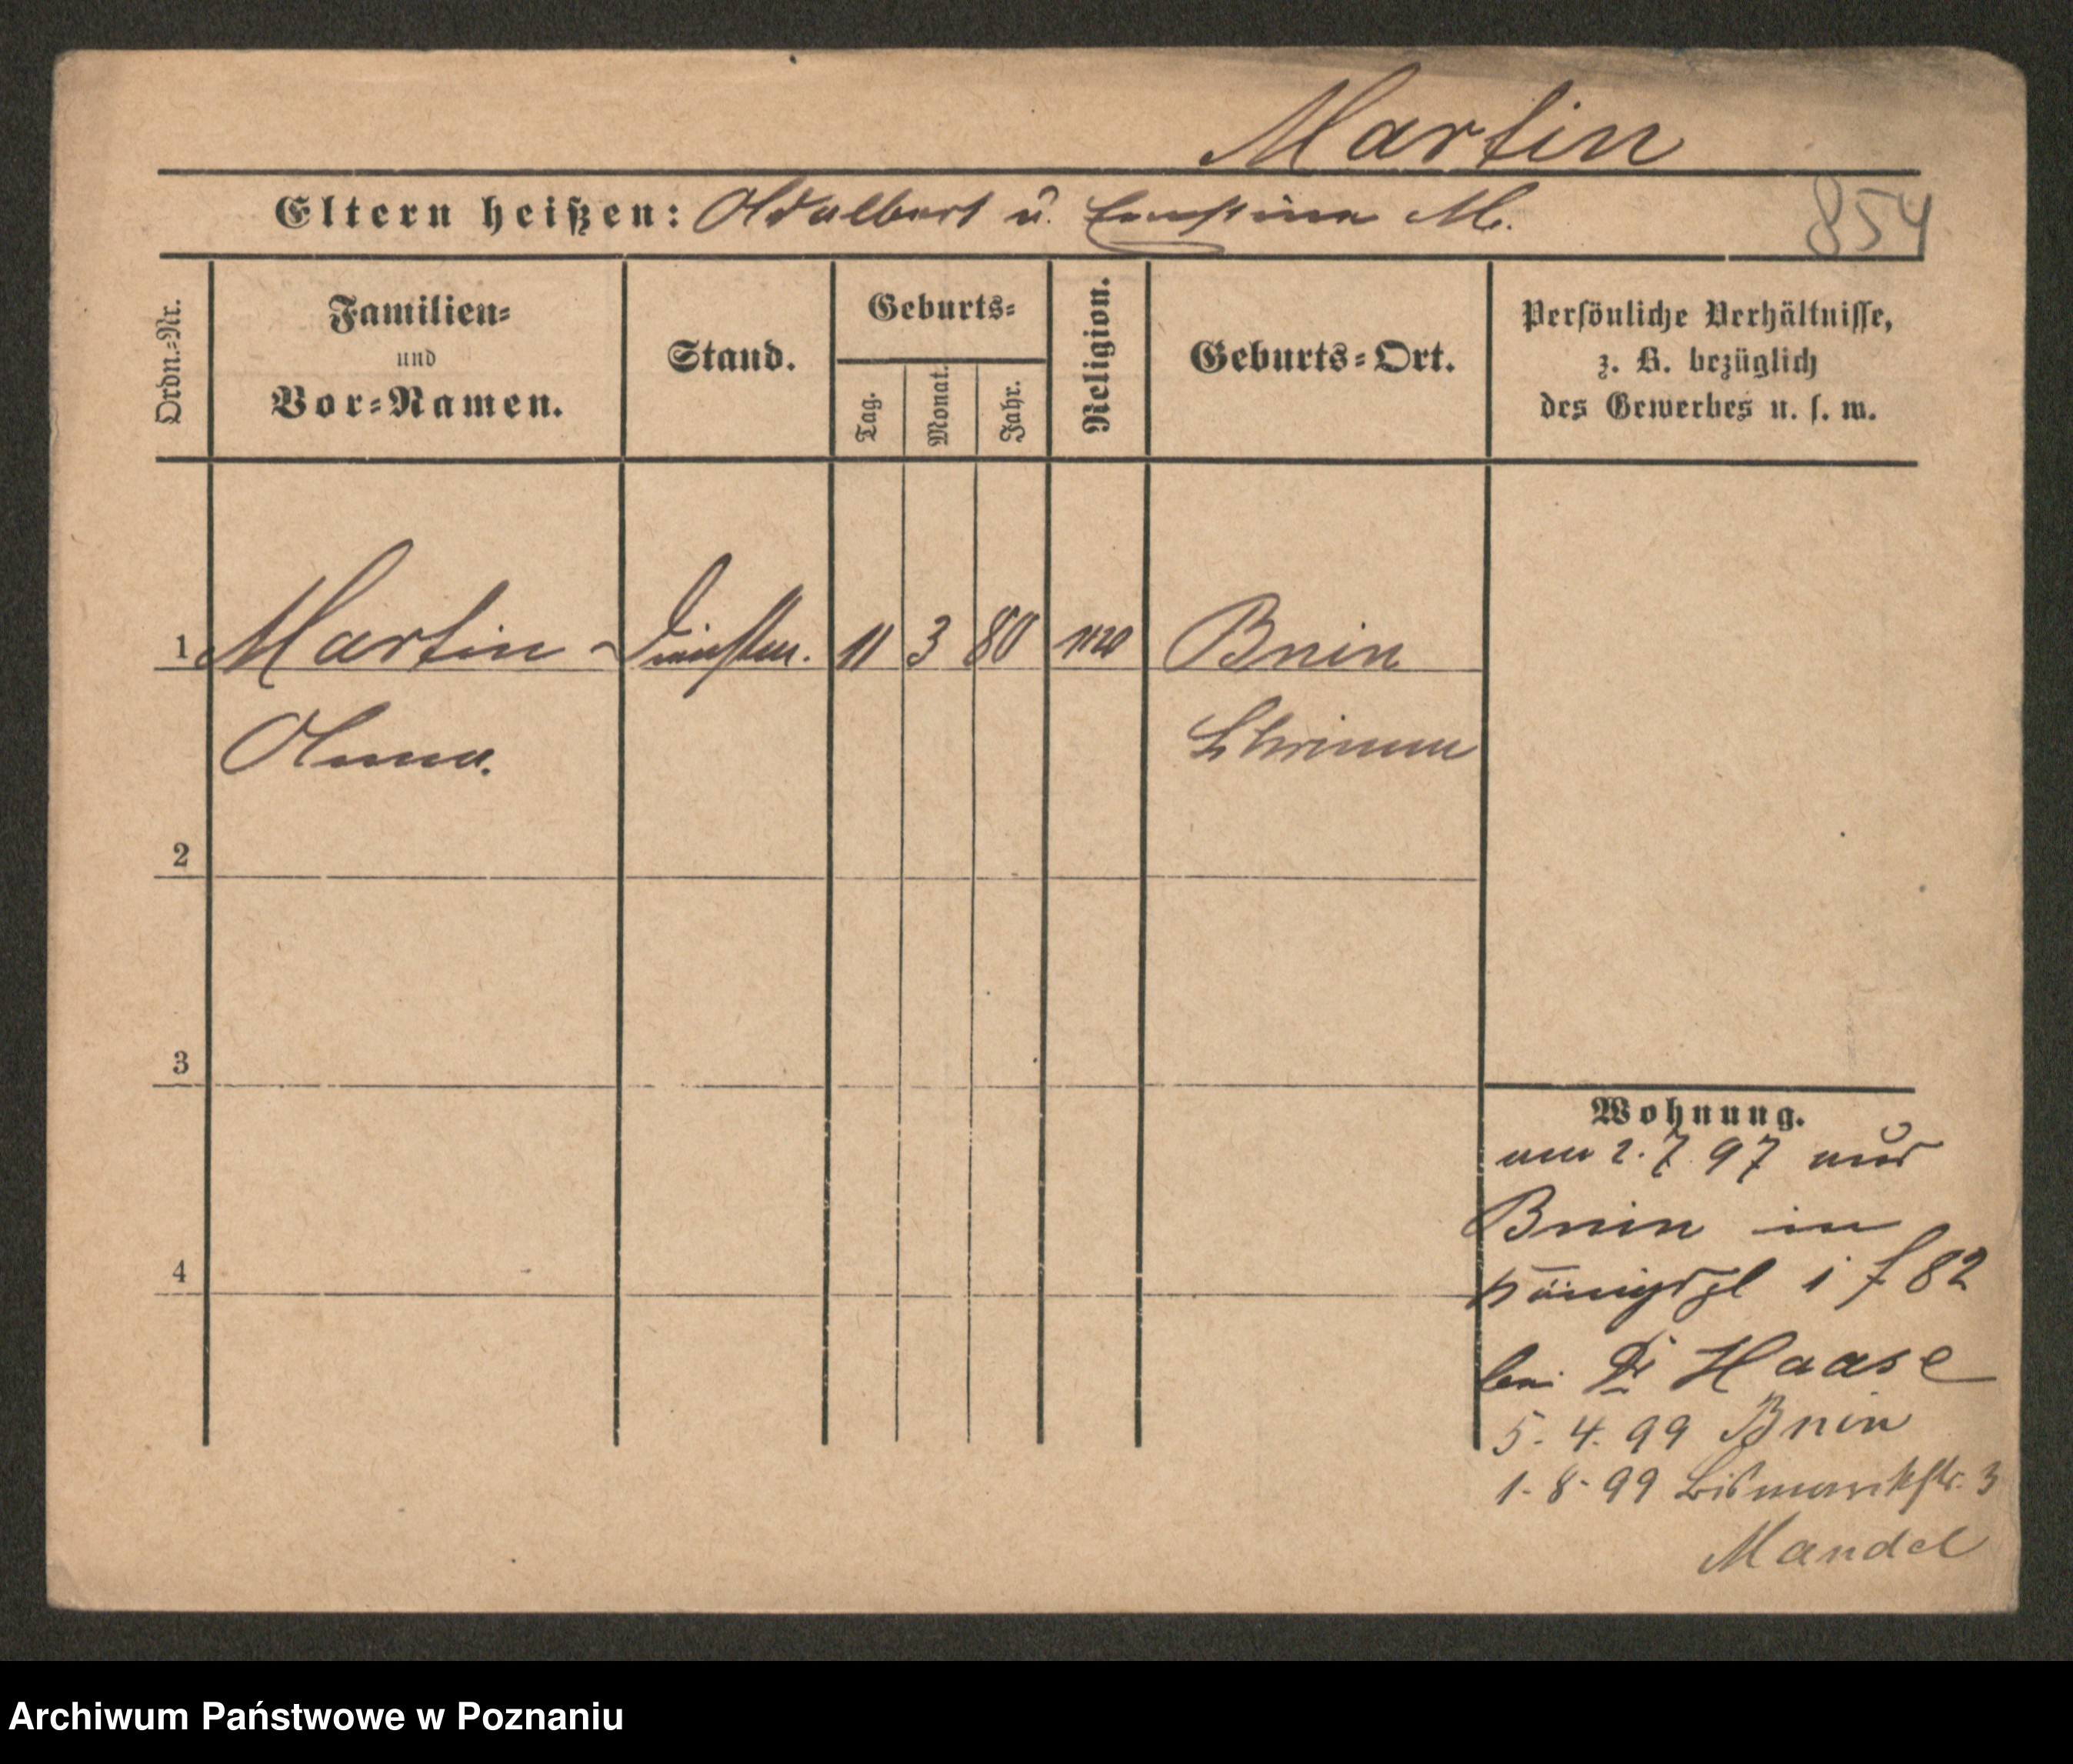 Martin
Eltern heißen: Adalbert u. Ernstine M.
854
Ordn.-Nr.
Familien-
und
Vor-Namen.
Stand.
Geburts-
Tag.
Monat.
Jahr.
Religion.
Geburts-Ort.
Persönliche Verhältnisse,
z. B. bezüglich
des Gewerbes u. s. w.
1 Martin 11 3 80 Bnin
Anna. Schrimm
2
3
4
Wohnung.
am 2. 7. 97 aus
Bnin in
82
bei Dr Haase
5. 4. 99 Bnin
1. 8. 99 Bismarckstr. 3
Mandel
Archiwum Państwowe w Poznaniu